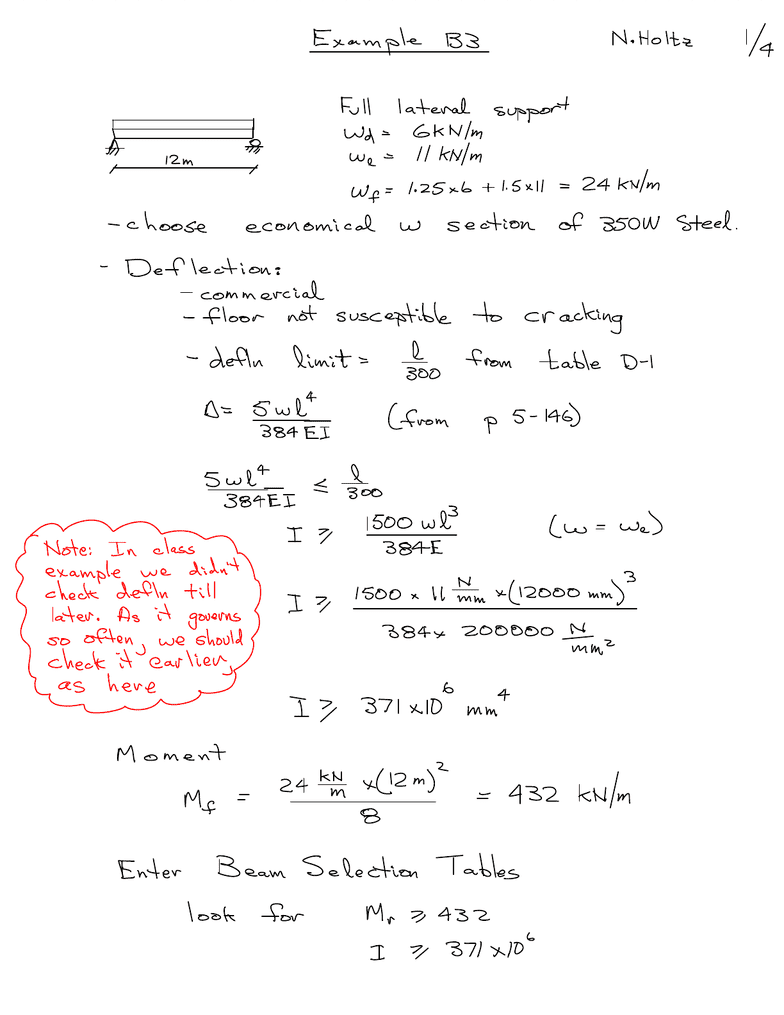 Example B3 N.Holtz 1/4
Full lateral support
wd = 6kN/m
wl = 11 kN/m
wf = 1.25x6 + 1.5x11 = 24 kN/m
12m
- choose economical W section of 350W Steel.
- Deflection:
- commercial
- floor not susceptible to cracking
- defln limit = l/300 from table D-1
Δ = 5wl⁴/384EI (from p 5-146)
5wl⁴/384EI ≤ l/300
I ≥ 1500 wl³/384E (w = wl)
Note: In class
example we didn't
check defln till
later. As it governs
so often, we should
check it earlier,
as here
I ≥ 1500 x 11 N/mm x (12000 mm)³ / 384x 200000 N/mm²
I ≥ 371 x10⁶ mm⁴
Moment
Mf = 24 kN/m x(12 m)² / 8 = 432 kN/m
Enter Beam Selection Tables
look for Mr ≥ 432
I ≥ 371 x10⁶